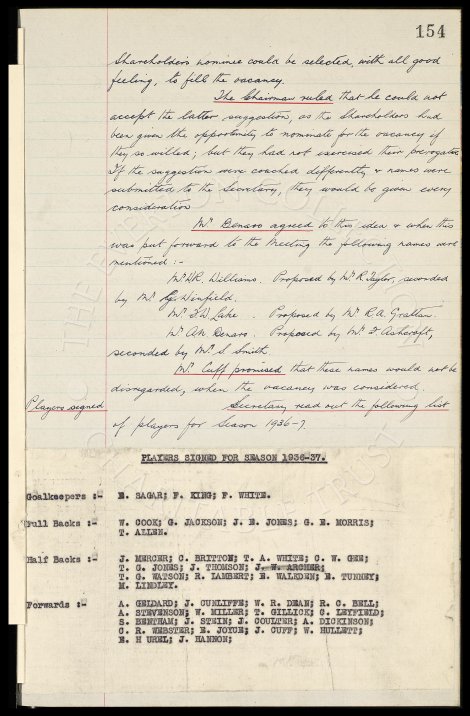 154
Shareholders nominee could be selected, with all good
feeling, to fill the vacancy.
The Chairman ruled that he could not
accept the latter suggestion, as the Shareholders had
been given the opportunity to nominate for the vacancy if
they so willed, but they had not exercised their prerogative.
If the suggestion were couched differently, & names were
submitted to the Secretary, they would be given every
consideration
Mr Benaro agreed to this idea & when this
was put forward to the Meeting the following names were
mentioned :-
Mr W.R. Williams. Proposed by Mr R. Taylor, seconded
by Mr G. Winfield.
Mr Lake. Proposed by Mr R.A. Gratton.
Mr A.N. Denaro. Proposed by Mr Ashcroft,
seconded by Mr S. Smith.
Mr Cuff promised that these names would not be
disregarded, when the vacancy was considered.
Players signed
Secretary read out the following list
of players for Season 1936-7.
PLAYERS SIGNED FOR SEASON 1936-37.
Goalkeepers :- E. SAGAR; F. KING; F. WHITE.
Full Backs :- W. COOK; G. JACKSON; J. E. JONES; G. E. MORRIS;
T. ALLEN.
Half Backs :- J. MERCER; C. BRITTON; T. A. WHITE; C. W. GEE;
T. G. JONES; J. THOMSON; J. W. ARCHER;
T. G. WATSON; R. LAMBERT; E. WALKDEN; E. TUNNEY;
M. LINDLEY.
Forwards :- A. GELDARD; J. CUNLIFFE; W. R. DEAN; R. C. BELL;
A. STEVENSON; W. MILLER; T. GILLICK; G. LEYFIELD;
S. BENTHAM; J. STEIN; J. COULTER; A. DICKINSON;
C. R. WEBSTER; E. JOYCE; J. CUFF; W. HULLETT;
E. H UREL; J. HANNON;